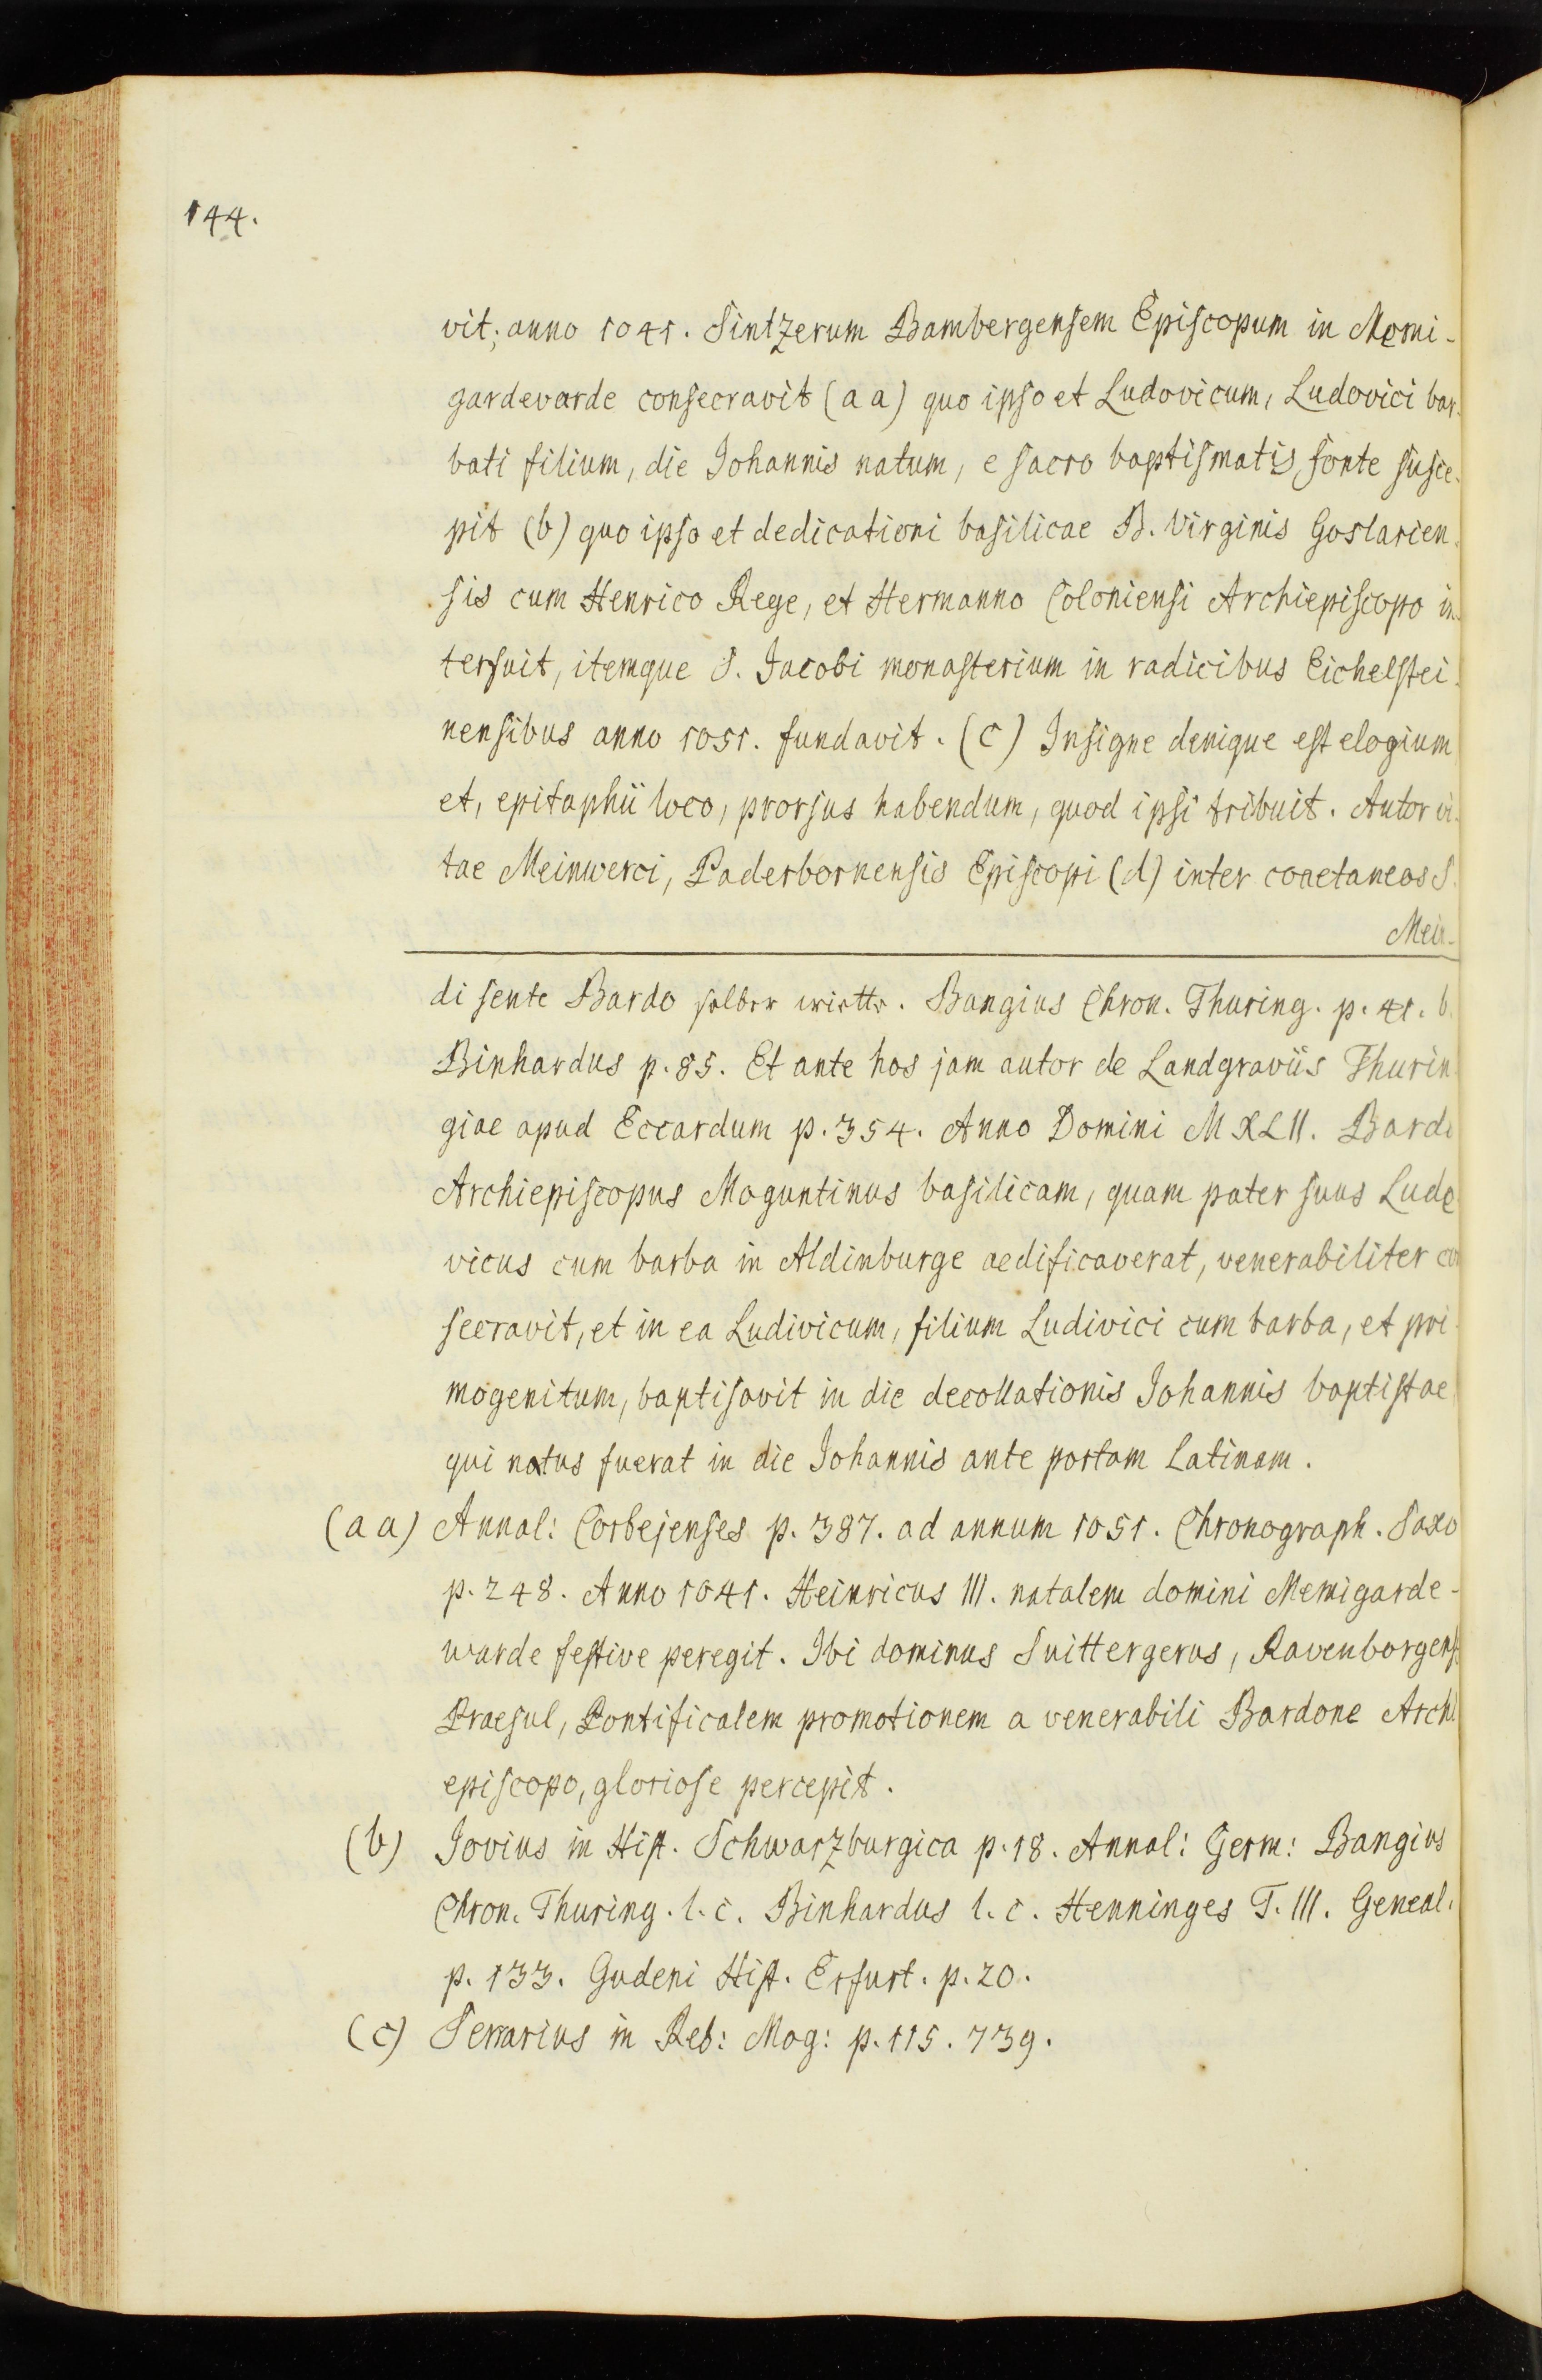 144.
vit; anno 1041. Sintzerum Bambergensem Episcopum in Memi-
gardevarde consecravit (a a) quo ipso et Ludovicum, Ludovici bar-
bati filium, die Johannis natum, e sacro baptismatis fonte susce-
pit (b) quo ipso et dedicationi basilicae B. Virginis Goslarien-
sis cum Henrico Rege, et Hermanno Coloniensi Archiepiscopo in-
terfuit, itemque S. Jacobi monasterium in radicibus Eichelstei-
nensibus anno 1051. fundavit. (c) Insigne denique est elogium
et, epitaphii loco, prorsus habendum, quod ipsi tribuit. Autor vi-
tae Meinwerci, Paderbornensis Episcopi (d) inter coaetaneos S.
Mein-
di sente Bardo selber . Bangius Chron. Thuring. p. 41. b.
Binhardus p. 85. Et ante hos jam autor de Landgraviis Thurin
giae apud Eccardum p. 354. Anno Domini MXLII. Bardo
Archiepiscopus Moguntinus basilicam, quam pater suus Ludo
vicus cum barba in Aldinburge aedificaverat, venerabiliter con
secravit, et in ea Ludivicum, filium Ludivici cum barba, et pri-
mogenitum, baptisavit in die decollationis Johannis baptistae
qui natus fuerat in die Johannis ante portam Latinam.
(a a) Annal: Corbejenses p. 387. ad annum 1051. Chronograph. Saxo
p. 248. Anno 1041. Heinricus III. natalem domini Memigarde-
warde festive peregit. Ibi dominus Suittergerus, Ravenborgens.
Praesul, Pontificalem promotionem a venerabili Bardone Archi
episcopo, gloriose percepit.
(b) Jovius in Hist. Schwarzburgica p. 18. Annal: Germ: Bangius
Chron. Thuring. l. c. Binhardus l. c. Henninges T. III. Geneal.
p. 133. Gudeni Hist. Erfurt. p. 20.
(c) Serrarius in Reb: Mog: p. 115. 739.